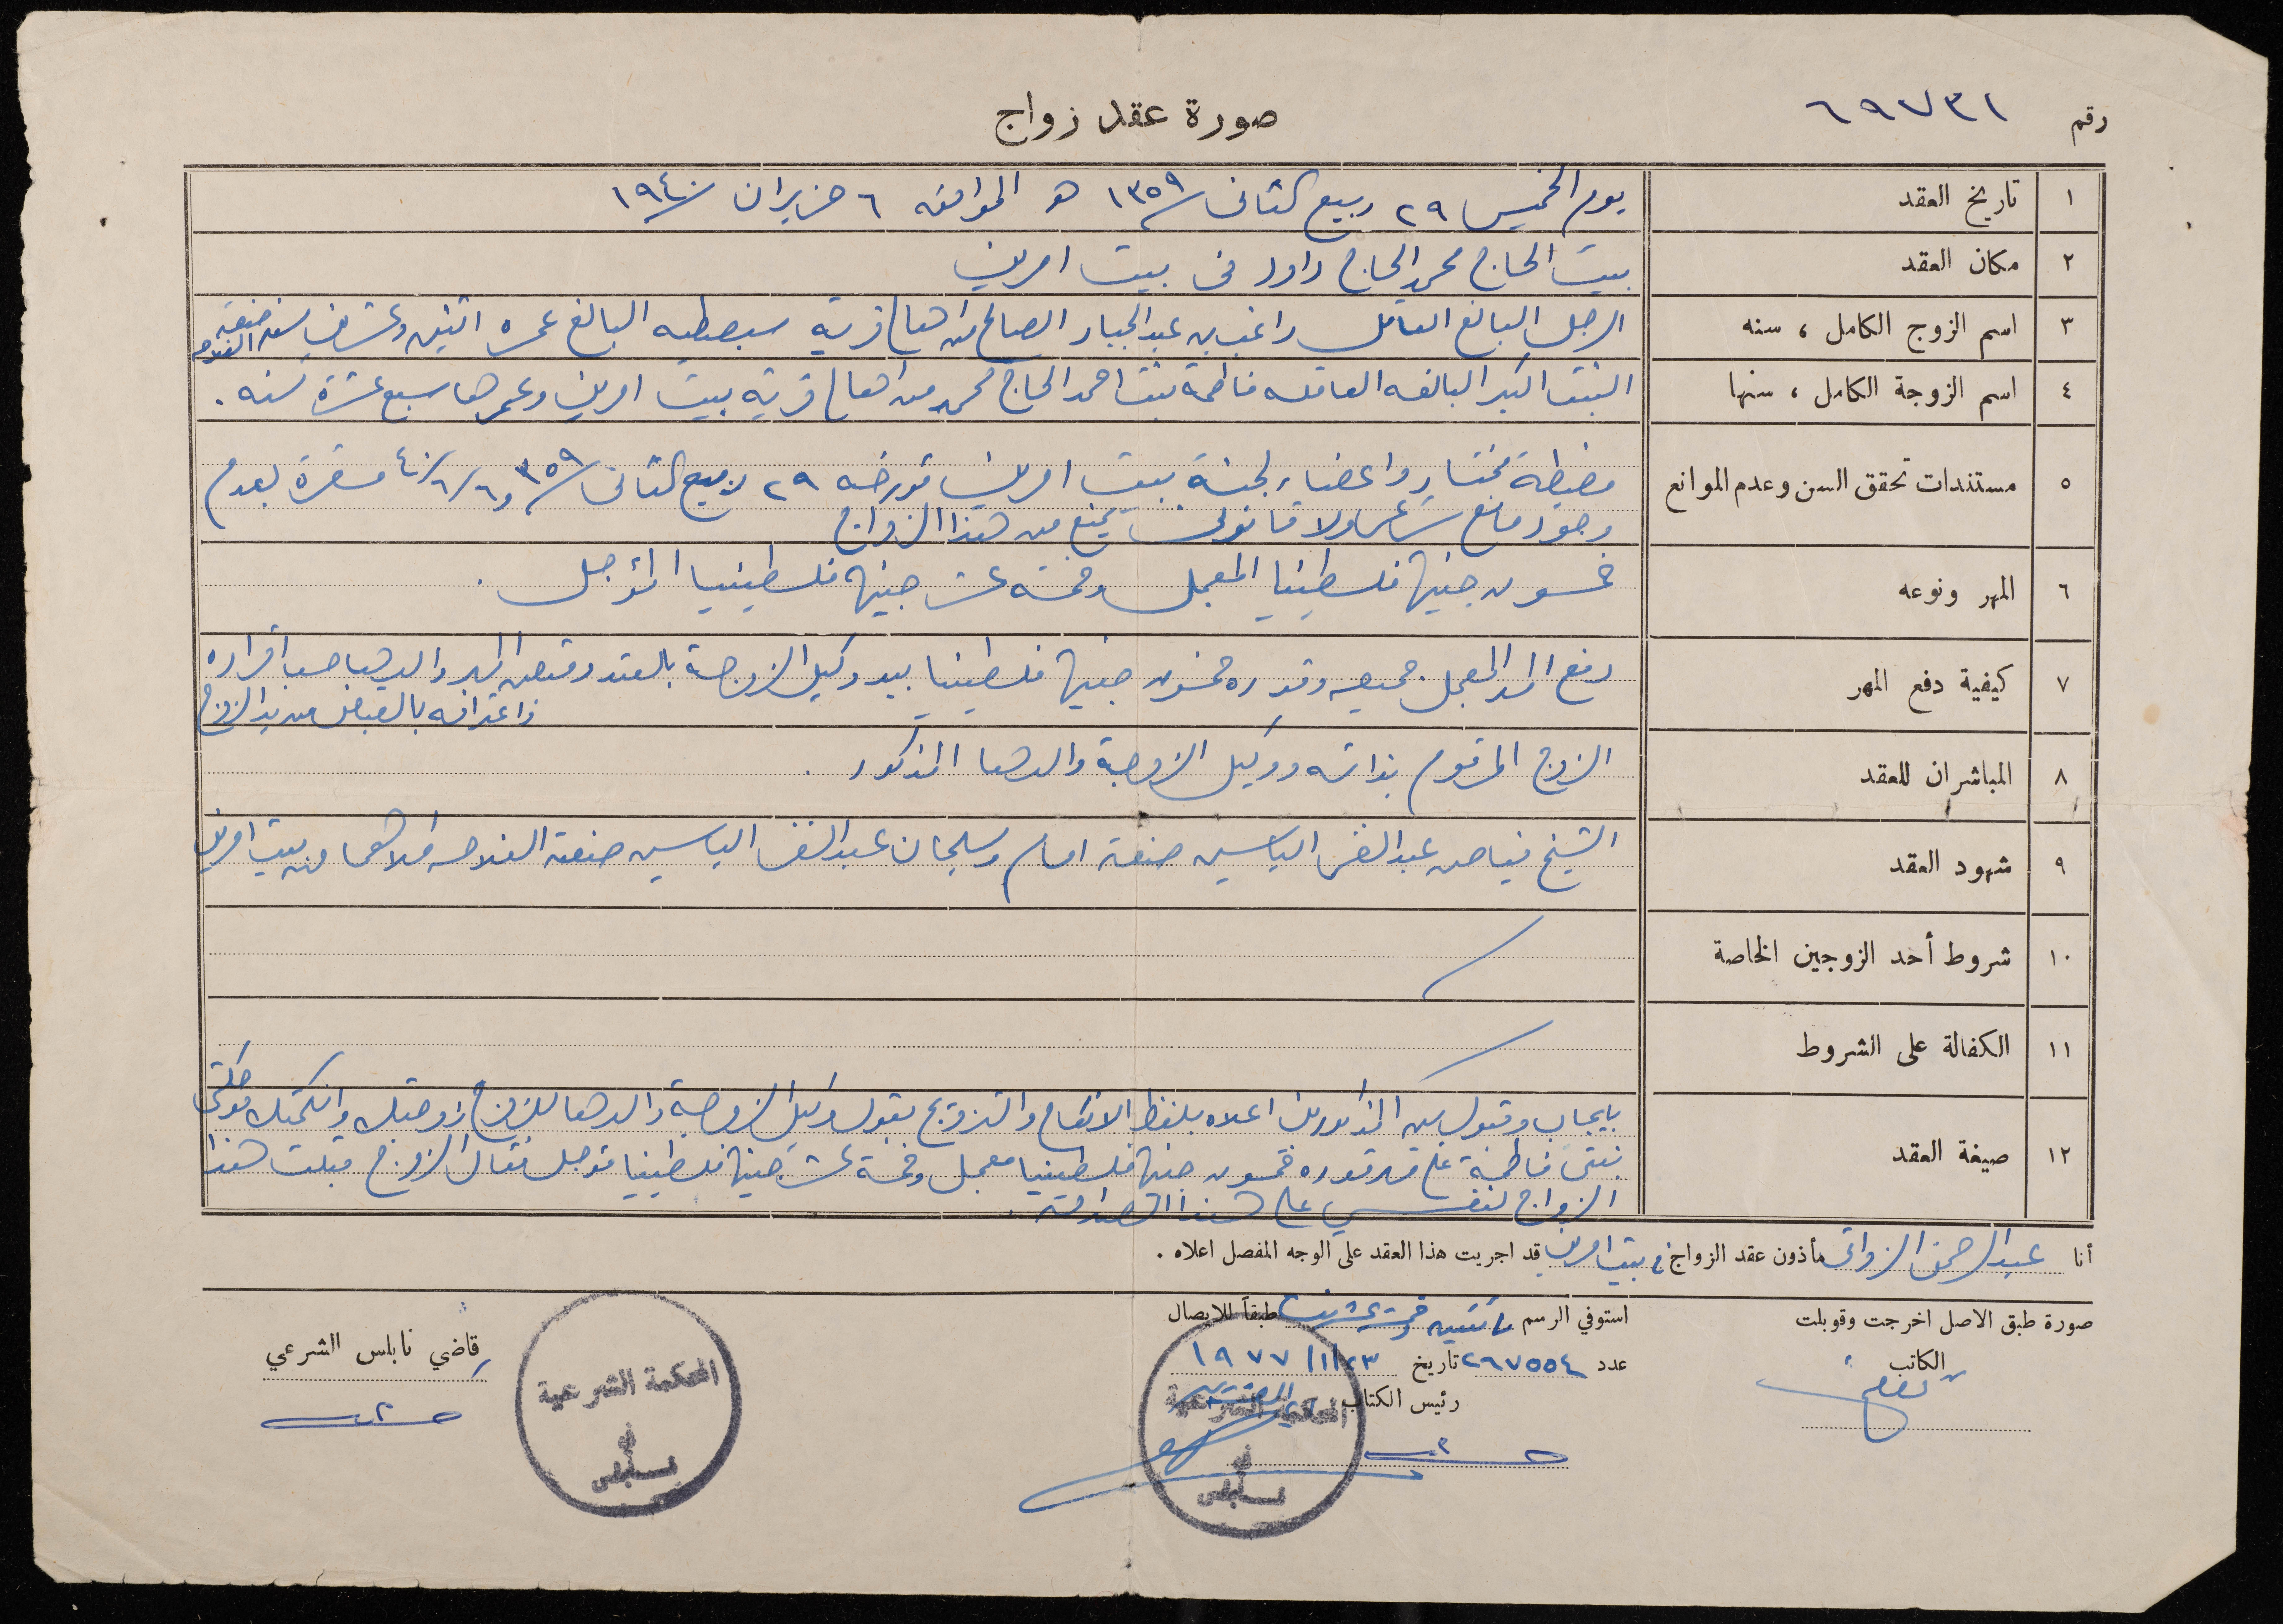 رقم ٦٩٧٣١
صورة عقد زواج
١ تاريخ العقد يوم الخميس ٢٩ ربيع الثاني ١٣٥٩ هـ الموافق ٦ حزيران ١٩٤٠
٢ مكان العقد بيت الحاج محمد الحاج داود في بيت امرين
٣ اسم الزوج الكامل ، سنه الرجل البالغ العاقل راغب بن عبد الجبار الصالح من اهالي قرية سبصطيه البالغ عمره اثنين وعشرين سنه صنعته
الفلاحه
٤ اسم الزوجة الكامل ، سنها البنت البكر البالغه العاقله فاطمة بنت احمد الحاج محمد من اهالي قرية بيت امرين وعمرها سبع عشرة سنه .
٥ مستندات تحقق السن وعدم الموانع مضبطة مختار واعضاء لجنة بيت امرين مورخه ٢٩ ربيع الثاني ٣٥٩ و ٦/٦/٤٠ مشعرة بعدم
وجود مانع شرعي ولا قانوني يمنع من هذا الزواج
٦ المهر ونوعه خمسون جنيها فلسطينيا المعجل وخمسة عشر جنيها فلسطينيا المؤجل .
٧ كيفية دفع المهر دفع المهر المعجل جميعه وقدره خمسون جنيها فلسطينيا بيد وكيل الزوجة بالعقد وقبض المهر والدها حسب اقراره
واعترافه بالقبض من يد الزوج
٨ المباشران للعقد الزوج المرقوم بذاته ووكيل الزوجة والدها المذكور .
٩ شهود العقد الشيخ فياض عبد الغني الياسين صنعته امام وسليمان عبد الغني الياسين صنعته الفلاحه كلاهما من بيت امرين
١٠ شروط أحد الزوجين الخاصة
١١ الكفالة على الشروط
١٢ صيغة العقد بايجاب وقبول من المذكورين اعلاه بلفظ الانكاح والتزويج بقول وكيل الزوجة والدها للزوج زوجتك وانكحتك موكلتي
بنتي فاطمة على مهر قدره خمسون جنيها فلسطينيا معجل وخمسة عشر جنيها فلسطينيا مؤجل فقال الزوج قبلت هذا
الزواج لنفسي على هذا الصداق .
أنا عبد الرحمن الزواتي مأذون عقد الزواج في بيت امرين قد اجريت هذا العقد على الوجه المفصل اعلاه .
صورة طبق الاصل اخرجت وقوبلت
الكاتب
استوفي الرسم طبقاً للايصال
عدد ٢٦٧٥٥٤ تاريخ ١٩٧٧/١/٢٣
رئيس الكتاب
المحكمة الشرعية
في
نابلس
المحكمة الشرعية
في
نابلس
قاضي نابلس الشرعي